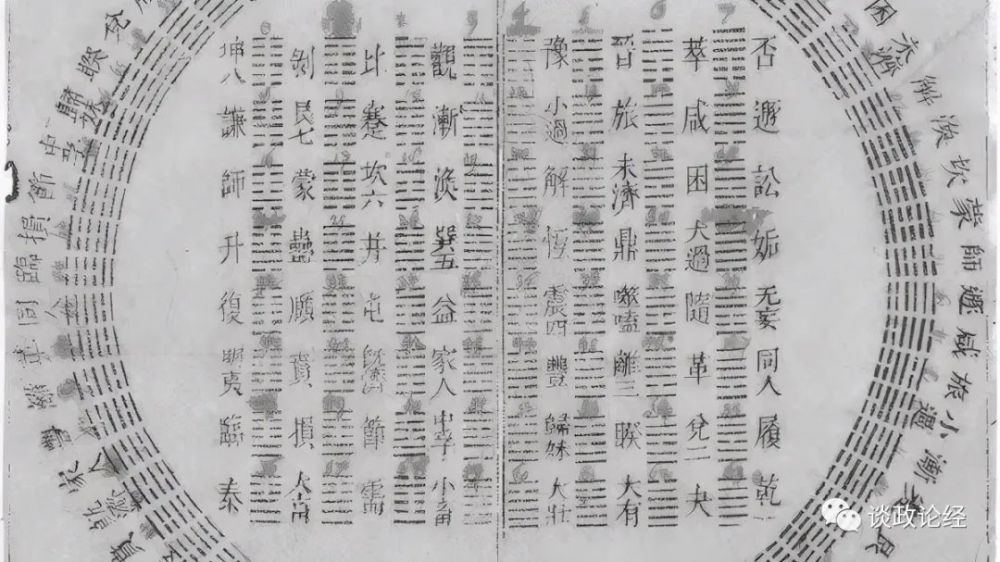 否 遯 訟 姤 无妄 同人 履 乾
萃 咸 困 大過 隨 革 兌二 夬
晉 旅 未濟 鼎 噬嗑 離三 睽 大有
豫 小過 解 恆 震四 豐 歸妹 大壯
觀 漸 渙 巽五 益 家人 中孚 小畜
比 蹇 坎六 井 屯 既濟 節 需
剝 艮七 蒙 蠱 頤 賁 損 大畜
坤八 謙 師 升 復 明夷 臨 泰
困 未濟 解 渙 坎 蒙 師 遯 咸 旅 小過 漸 蹇 艮
兌 睽 歸妹 中孚 節 損 臨 同人 革 離 豐 家人 既濟 賁
谈政论经